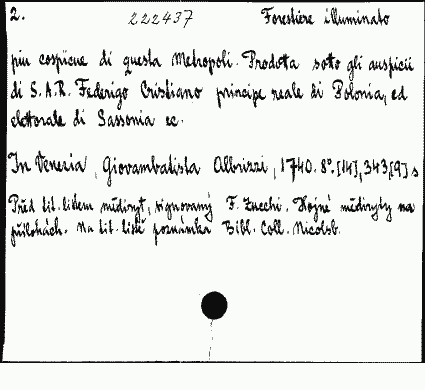 2. 222437 Forestiere illuminato
piu cospicue di questa Metropoli. Prodotta sotto gli auspicii
di S.A.R. Federigo Cristiano principe reale di Polonia, ed
elettorale di Sassonia ec.
In Venezia, Giovambatista Albrizzi, 1740. 8°. [14], 343, [9] s
Před tit. listem mědiryt, signovaný F. Zucchi. Hojné mědiryty na
přílohách. Na tit. listě poznámka Bibl. Coll. Nicolsb.